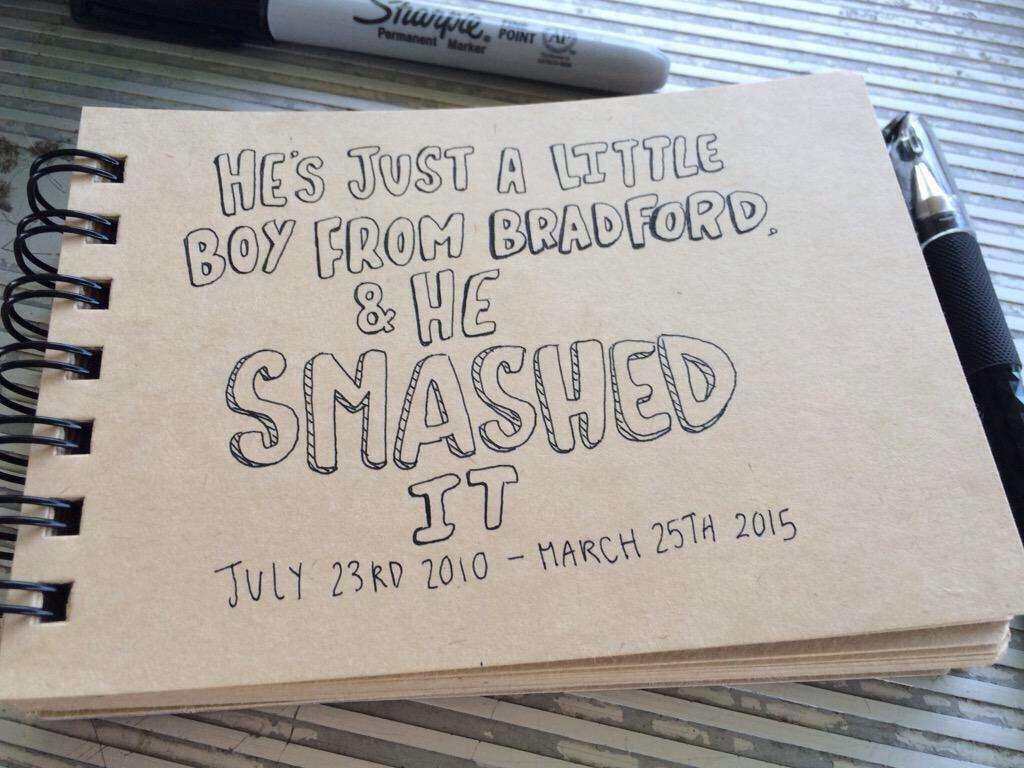 Sharpie. FINE POINT AP
Permanent Marker
HE'S JUST A LITTLE
BOY FROM BRADFORD.
& HE
SMASHED
IT
JULY 23RD 2010 - MARCH 25TH 2015